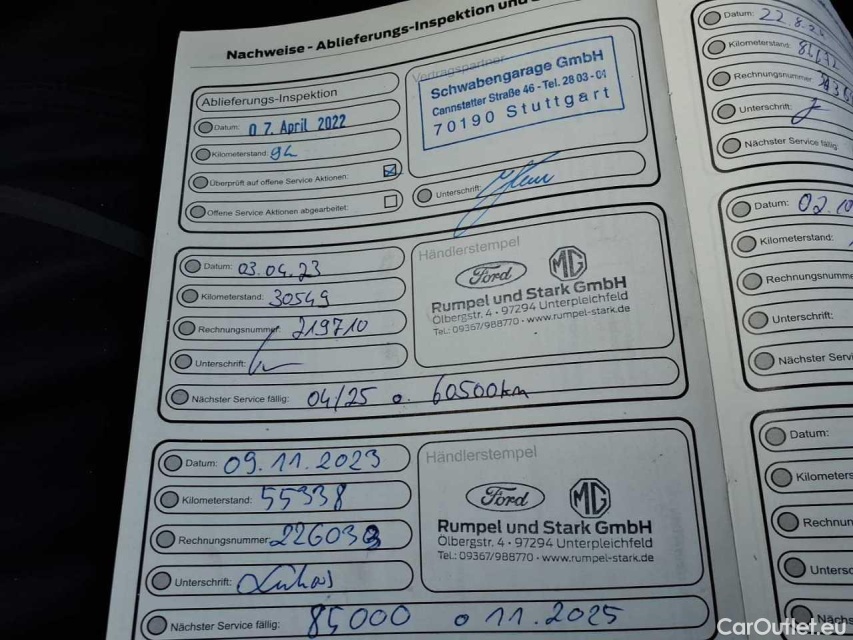 Nachweise - Ablieferungs-Inspektion und
Ablieferungs-Inspektion
Datum: 07. April 2022
Kilometerstand:
Überprüft auf offene Service Aktionen:
Offene Service Aktionen abgearbeitet:
Vertragspartner
Schwabengarage GmbH
Cannstatter Straße 46 - Tel. 28 03 - 01
70190 Stuttgart
Unterschrift:
Datum: 03.04.23
Kilometerstand: 30549
Rechnungsnummer: 219710
Unterschrift:
Nächster Service fällig: 04/25 o. 60500km
Händlerstempel
Ford MG
Rumpel und Stark GmbH
Ölbergstr. 4 • 97294 Unterpleichfeld
Tel.: 09367/988770 • www.rumpel-stark.de
Datum: 09.11.2023
Kilometerstand: 55338
Rechnungsnummer: 226033
Unterschrift:
Nächster Service fällig: 85000 o 11.2025
Händlerstempel
Ford MG
Rumpel und Stark GmbH
Ölbergstr. 4 • 97294 Unterpleichfeld
Tel.: 09367/988770 • www.rumpel-stark.de
Datum: 22.8.
Kilometerstand:
Rechnungsnummer
Unterschrift:
Nächster Service fällig:
Datum: 02.10
Kilometerstand:
Rechnungsnumme
Unterschrift:
Nächster Servi
Datum:
Kilometers
Rechnun
Untersc
Nächs
CarOutlet.eu